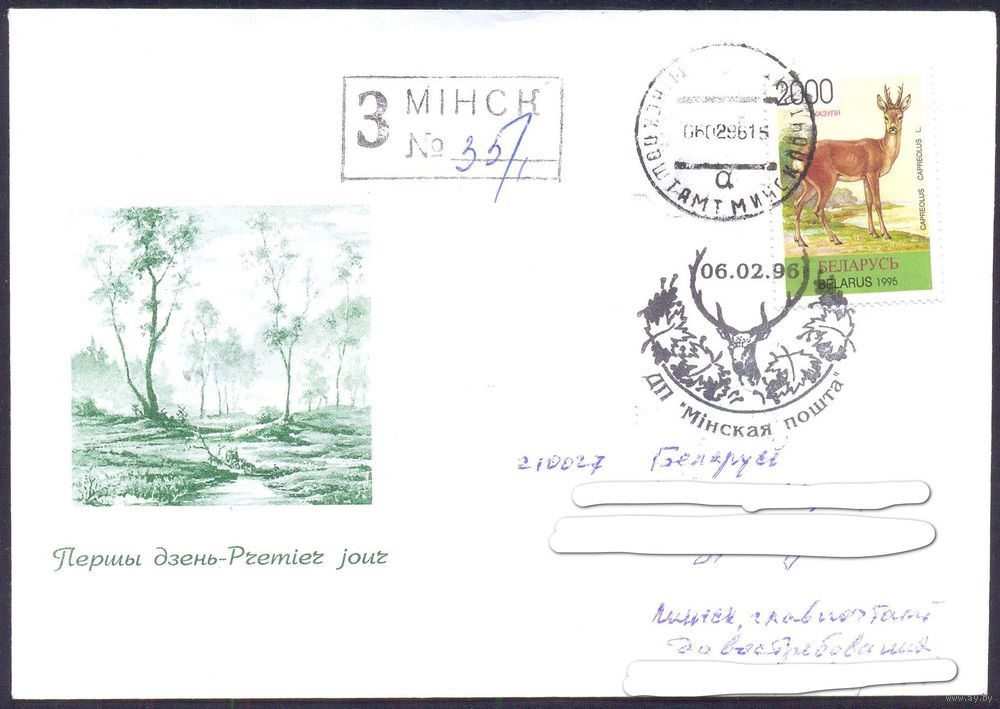 З МІНСК
№ 357
2000
КАЗУЛЯ
CAPREOLUS CAPREOLUS L.
06029615
МІНСК ПОШТАМТ МИНСК ПОЧТАМТ
а
06.02.96
БЕЛАРУСЬ
BELARUS 1995
ДП "Мінская пошта"
210027 Беларусі
Першы дзень-Premier jour
Минск, главпочтамт
до востребования
www.ay.by